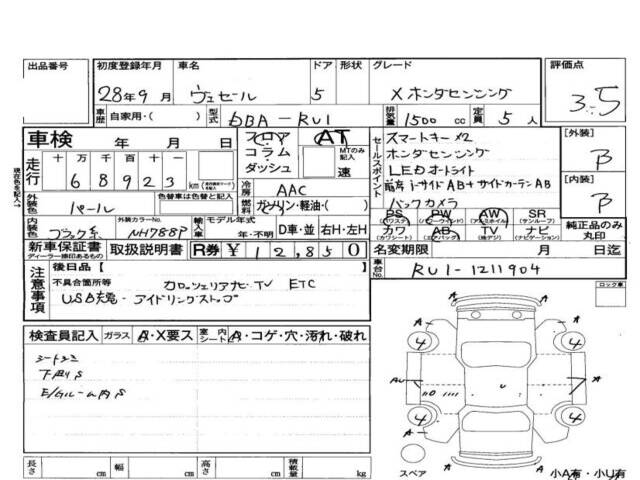 出品番号 初度登録年月 車名 ドア 形状 グレード 評価点
28年9月 ヴェゼール 5 X ホンダセンシング 3.5
車歴 自家用・( ) 型式 DBA-RU1 排気量 1500 cc 定員 5 人
車検 年 月 日 フロア AT スマートキー×2 [外装]
コラム MTのみ記入 ホンダセンシング B
走行 十 万 千 百 十 一 ダッシュ 速 セールスポイント LEDオートライト
6 8 9 2 3 km i-サイドAB+サイドカーテンAB [内装]
現在色を記入→ 色替車は色替と記入 冷房 AAC バックカメラ B
外装色 パール 燃料 ガソリン・軽油・( )
PS PW AW SR
(パワステ) (パワーウインド) (アルミホイル) (サンルーフ)
内装色 ブラック系 外装カラーNo. NH788P 輸入車 モデル年式 年・不明 D車・並 右H・左H カワ AB TV ナビ 純正品のみ丸印
(カワシート) (エアバッグ) (地デジ) (ナビゲーション)
新車保証書 取扱説明書 R券 ¥ 12,850 名変期限 月 日迄
ディーラー捺印あるもの
後日品【 】 車台No. RU1-1211904
注意事項 不具合箇所等 カロッツェリアナビ TV ETC ロック車
USB充電・アイドリングストップ
検査員記入 ガラス A・X要ス 室内 シート A・コゲ・穴・汚れ・破れ
シートシミ
下廻りS
E/Gルーム内S
A A
4 4
A U A
4 4
A A
スペア
長さ cm 幅 cm 高さ cm 積載量 kg 小A有・小U有